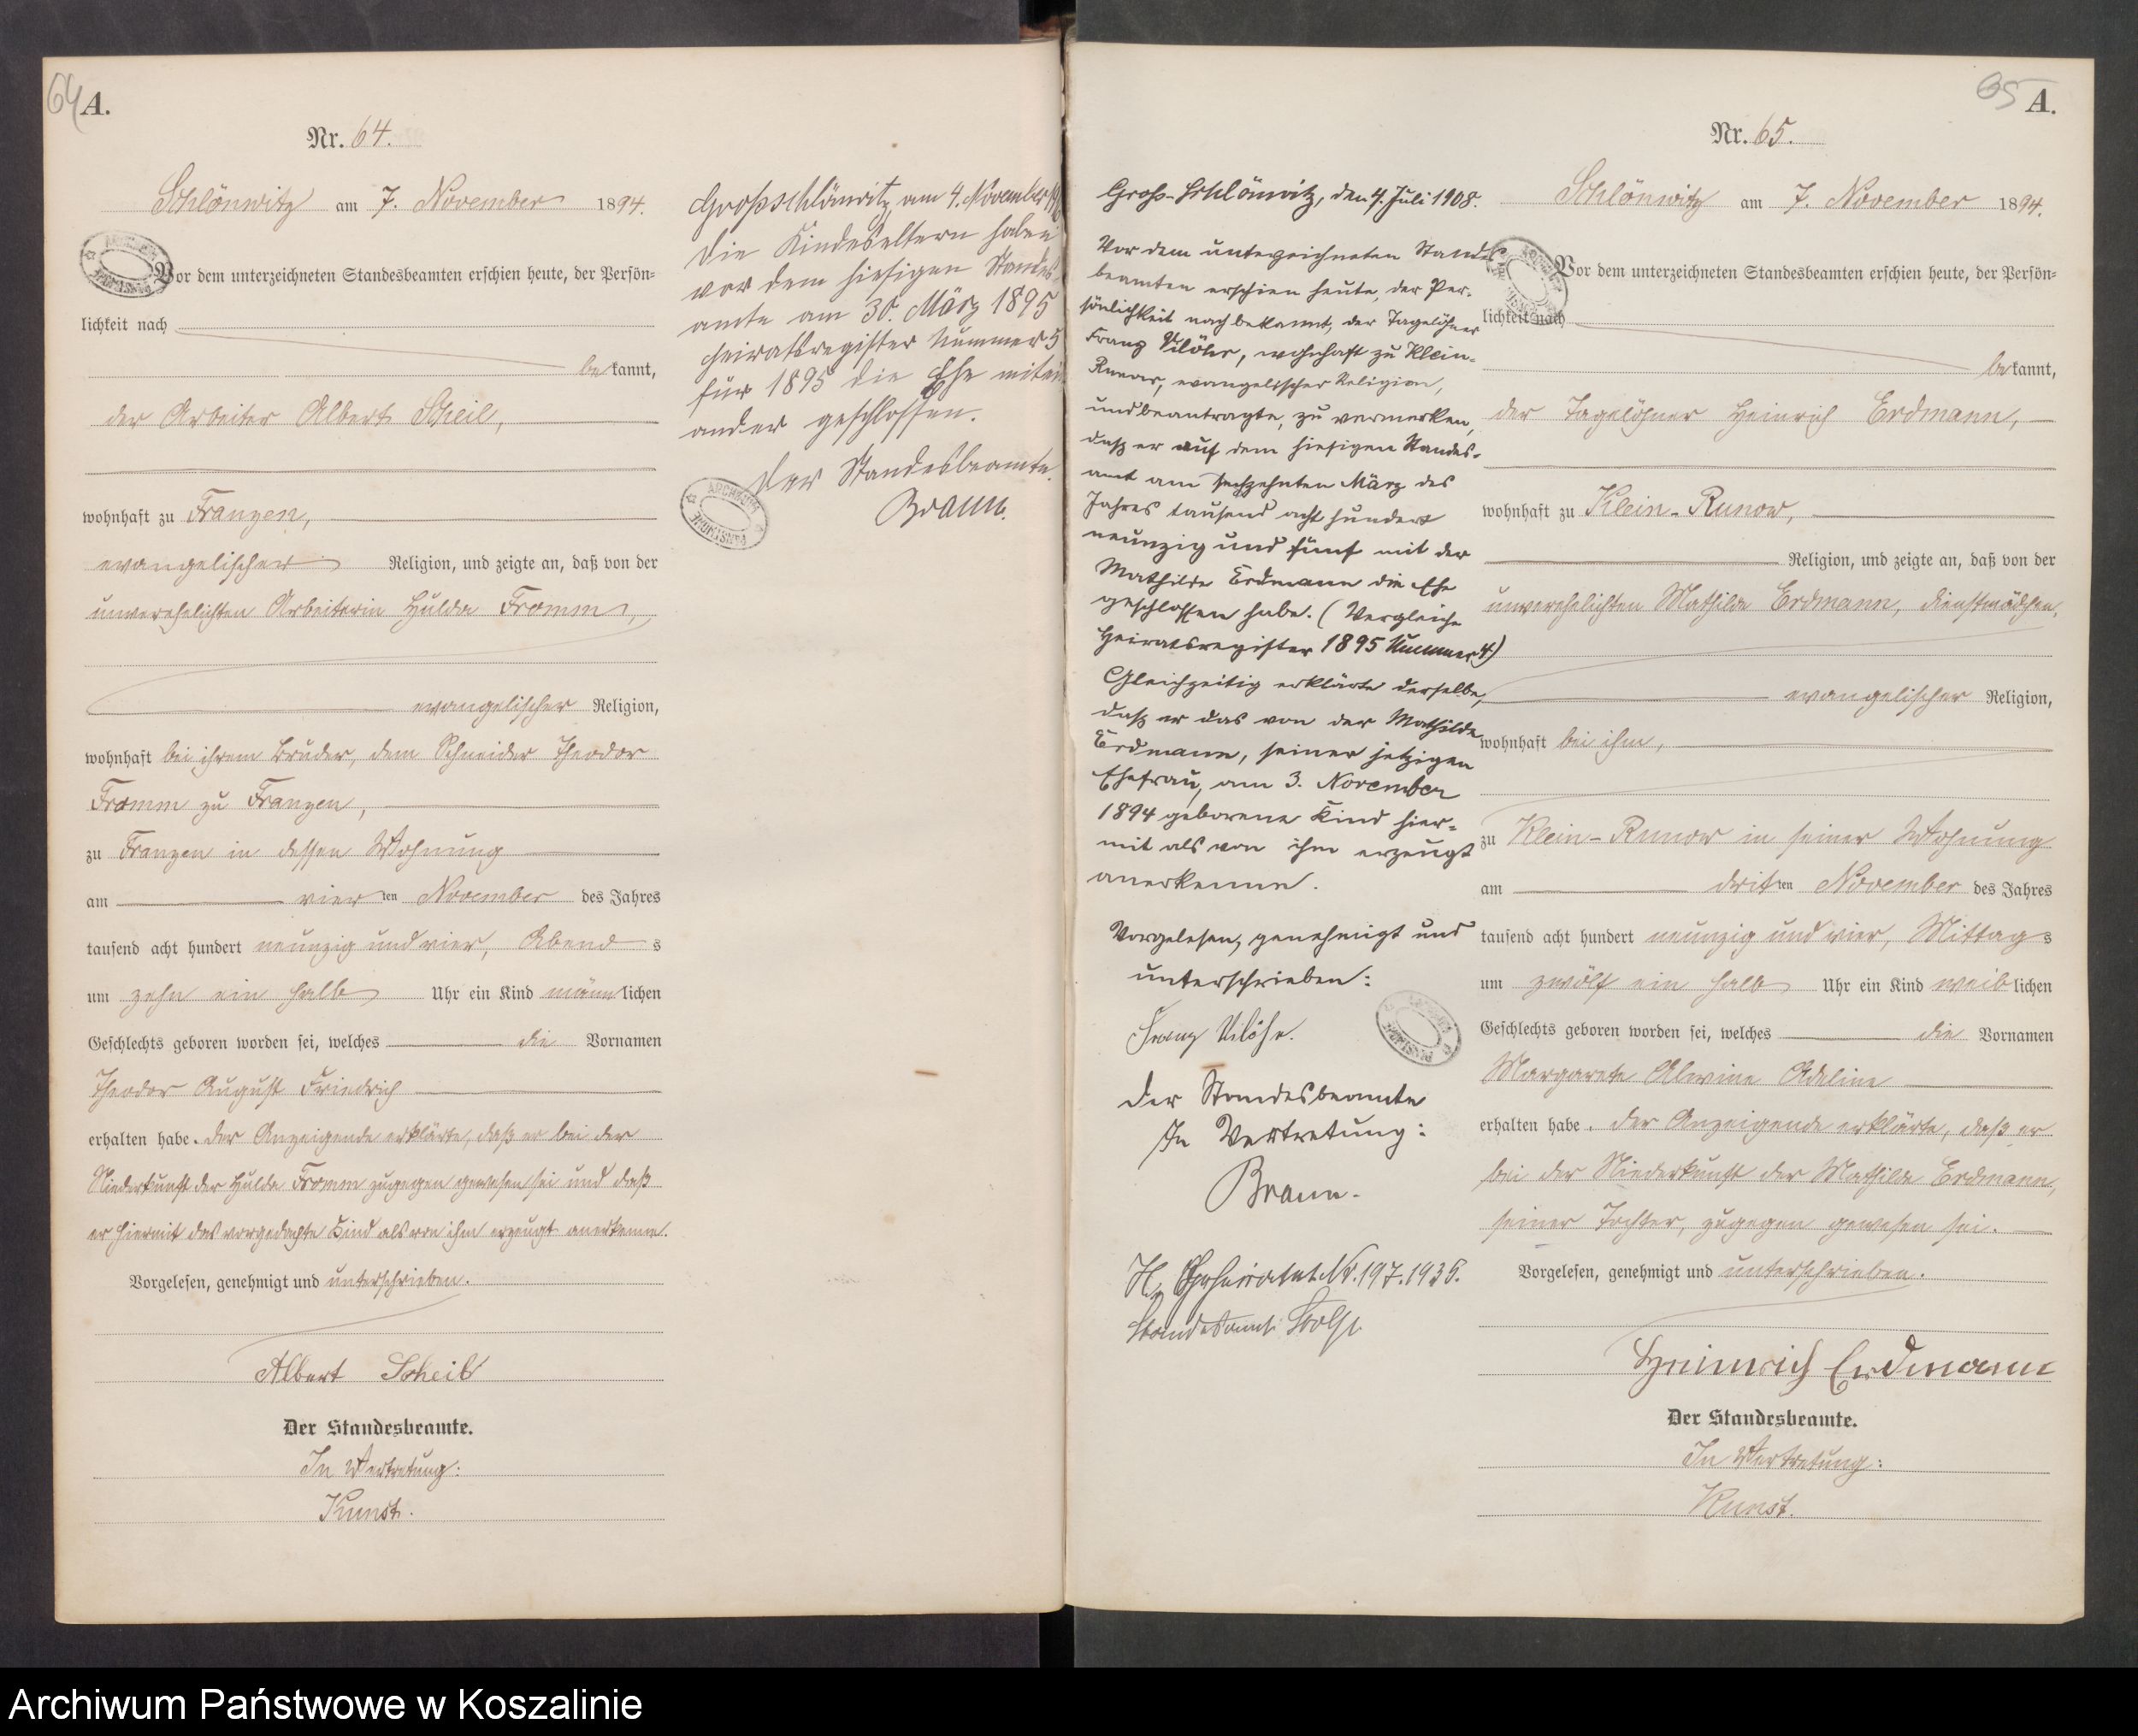 64
A.
Nr. 64.
Schlönwitz am 7. November 1894.
Vor dem unterzeichneten Standesbeamten erschien heute, der Persön=
lichkeit nach
bekannt,
der Arbeiter Albert Scheil,
wohnhaft zu Franzen,
evangelischer Religion, und zeigte an, daß von der
unverehelichten Arbeiterin Hulda Fromm,
evangelischer Religion,
wohnhaft bei ihrem Bruder, dem Schneider Theodor
Fromm zu Franzen,
zu Franzen in dessen Wohnung
am vierten November des Jahres
tausend acht hundert neunzig und vier, Abends
um zehn ein halb Uhr ein Kind männlichen
Geschlechts geboren worden sei, welches die Vornamen
Theodor August Friedrich
erhalten habe. Der Anzeigende erklärte, daß er bei der
Niederkunft der Hulda Fromm zugegen gewesen sei und daß
er hiermit das vorgedachte Kind als von ihm erzeugt anerkenne.
Vorgelesen, genehmigt und unterschrieben.
Albert Scheil
Der Standesbeamte.
In Vertretung:
Kunst.
Großschlönwitz, am 4. November
Die Kindeseltern haben
vor dem hiesigen Standes-
amte am 30. März 1895
Heiratsregister Nummer 5
für 1895 die Ehe mitein
ander geschlossen.
Der Standesbeamte.
Braun.
Groß-Schlönwitz, den 4. Juli 1908.
Vor dem unterzeichneten Standes
beamten erschien heute, der Per-
sönlichkeit nach bekannt, der Tagelöhner
Franz, wohnhaft zu Klein-
Runow, evangelischer Religion,
und beantragte, zu vermerken,
daß er auf dem hiesigen Standes-
amt am sechzehnten März des
Jahres tausend acht hundert
neunzig und fünf mit der
Mathilde Erdmann die Ehe
geschlossen habe. (Vergleiche
Heiratsregister 1895 Nummer 4)
Gleichzeitig erklärte derselbe,
daß er das von der Mathilde
Erdmann, seiner jetzigen
Ehefrau, am 3. November
1894 geborene Kind hier-
mit als von ihm erzeugt
anerkenne.
Vorgelesen, genehmigt und
unterschrieben:
Franz
Der Standesbeamte
In Vertretung:
Braun.
Nr. 197.1936.
Standesamt Stolp
65
A.
Nr. 65.
Schlönwitz am 7. November 1894.
Vor dem unterzeichneten Standesbeamten erschien heute, der Persön=
lichkeit nach
bekannt,
der Tagelöhner Heinrich Erdmann,
wohnhaft zu Klein-Runow,
Religion, und zeigte an, daß von der
unverehelichten Mathilde Erdmann, Dienstmädchen,
evangelischer Religion,
wohnhaft bei ihm,
zu Klein-Runow in seiner Wohnung
am dritten November des Jahres
tausend acht hundert neunzig und vier, Mittags
um zwölf ein halb Uhr ein Kind weiblichen
Geschlechts geboren worden sei, welches die Vornamen
Margarete Alwine Adeline
erhalten habe. Der Anzeigende erklärte, daß er
bei der Niederkunft der Mathilde Erdmann,
seiner Tochter, zugegen gewesen sei.
Vorgelesen, genehmigt und unterschrieben.
Heinrich Erdmann
Der Standesbeamte.
In Vertretung:
Kunst.
Archiwum Państwowe w Koszalinie